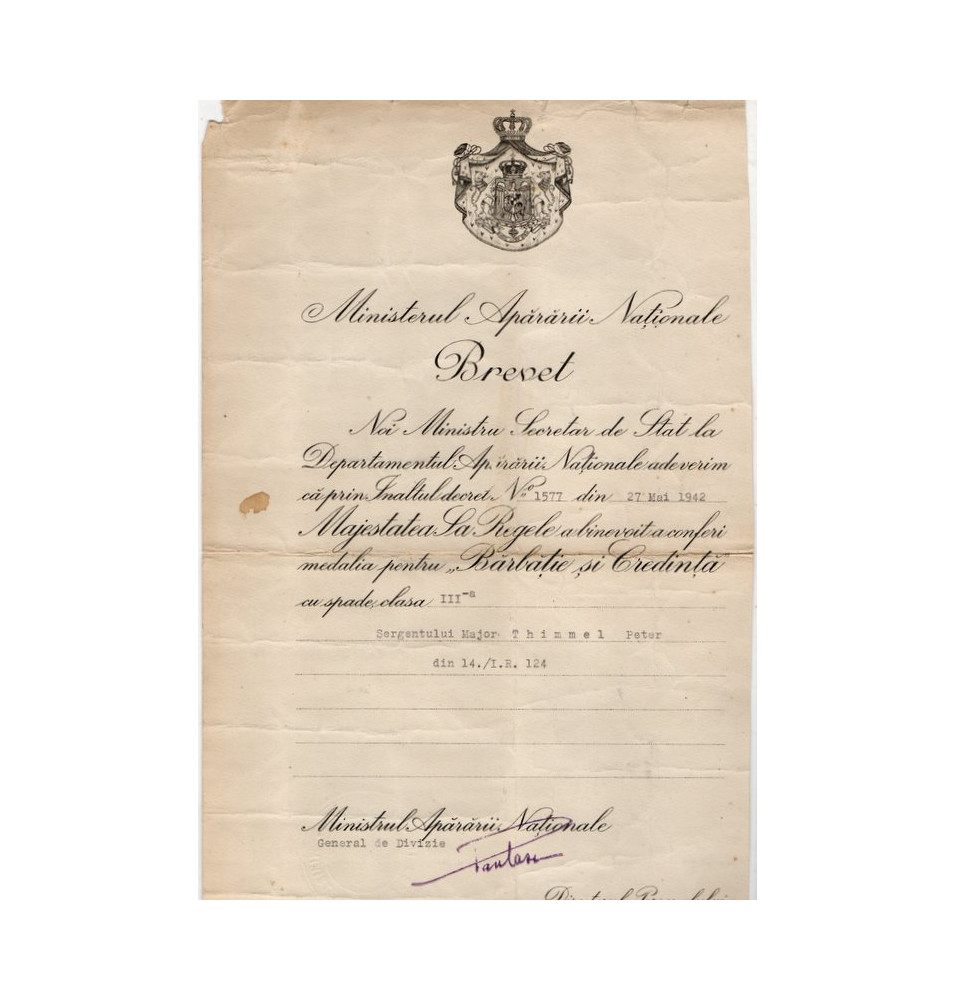 Ministerul Apărării Naționale
Brevet
Noi Ministru Secretar de Stat la
Departamentul Apărării Naționale adeverim
că prin Inaltul decret No 1577 din 27 Mai 1942
Majestatea Sa Regele a binevoit a conferi
medalia pentru „Bărbăție și Credință
cu spade, clasa III-a
Sergentului Major Thimmel Peter
din 14./I.R. 124
Ministrul Apărării Naționale
General de Divizie
Pantazi